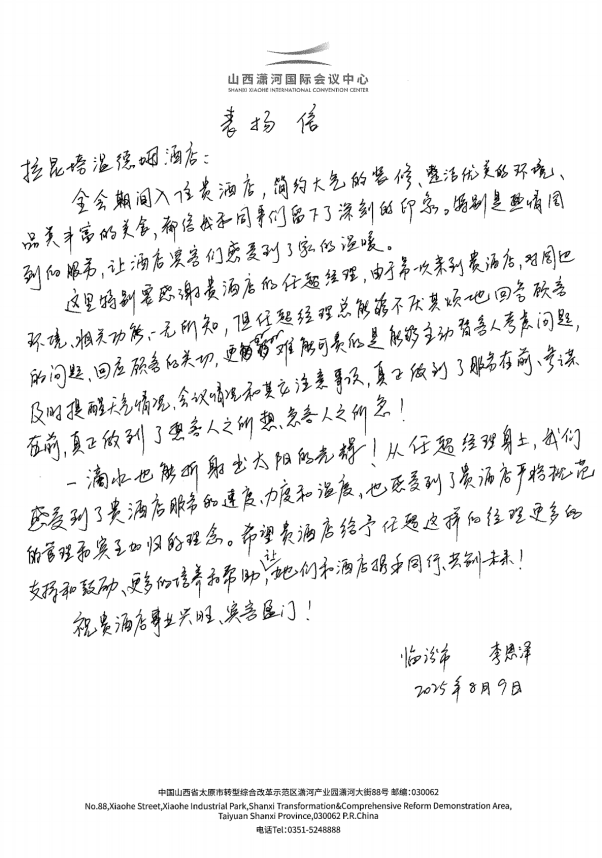 山西潇河国际会议中心
SHANXI XIAOHE INTERNATIONAL CONVENTION CENTER
表扬信
拉昆塔温德姆酒店：
全会期间入住贵酒店，简约大气的装修、整洁优美的环境、
品类丰富的美食，都给我和同事们留下了深刻的印象。特别是热情周
到的服务，让酒店宾客们感受到了家的温暖。
这里特别要感谢贵酒店的任超经理，由于第一次来到贵酒店，对周边
环境、相关功能一无所知，但任超经理总能够不厌其烦地回答顾客
的问题、回应顾客的关切，更难能可贵的是能够主动替客人考虑问题，
及时提醒天气情况、会议情况和其它注意事项，真正做到了服务在前、参谋
在前，真正做到了想客人之所想、急客人之所急！
一滴水也能折射出太阳的光辉！从任超经理身上，我们
感受到了贵酒店服务的速度、力度和温度，也感受到了贵酒店严格规范
的管理和宾至如归的理念。希望贵酒店给予任超这样的经理更多的
支持和鼓励、更多的培养和帮助，让她们和酒店携手同行、共创未来！
祝贵酒店事业兴旺、宾客盈门！
临汾市 李恩泽
2025年8月9日
中国山西省太原市转型综合改革示范区潇河产业园潇河大街88号 邮编：030062
No.88,Xiaohe Street,Xiaohe Industrial Park,Shanxi Transformation&Comprehensive Reform Demonstration Area,
Taiyuan Shanxi Province,030062 P.R.China
电话Tel：0351-5248888